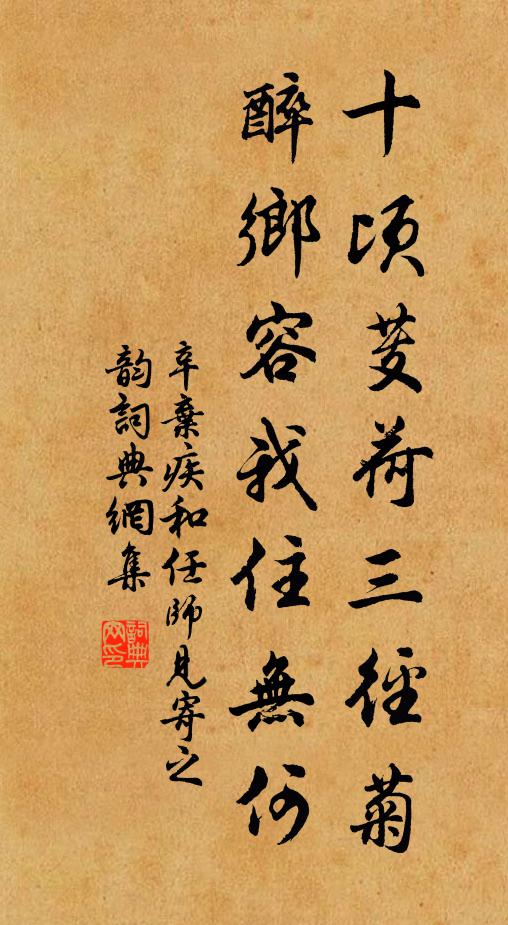 十頃芰荷三徑菊
醉鄉容我住無何
辛棄疾和任師見寄之
韵詞典網集
詞典網印